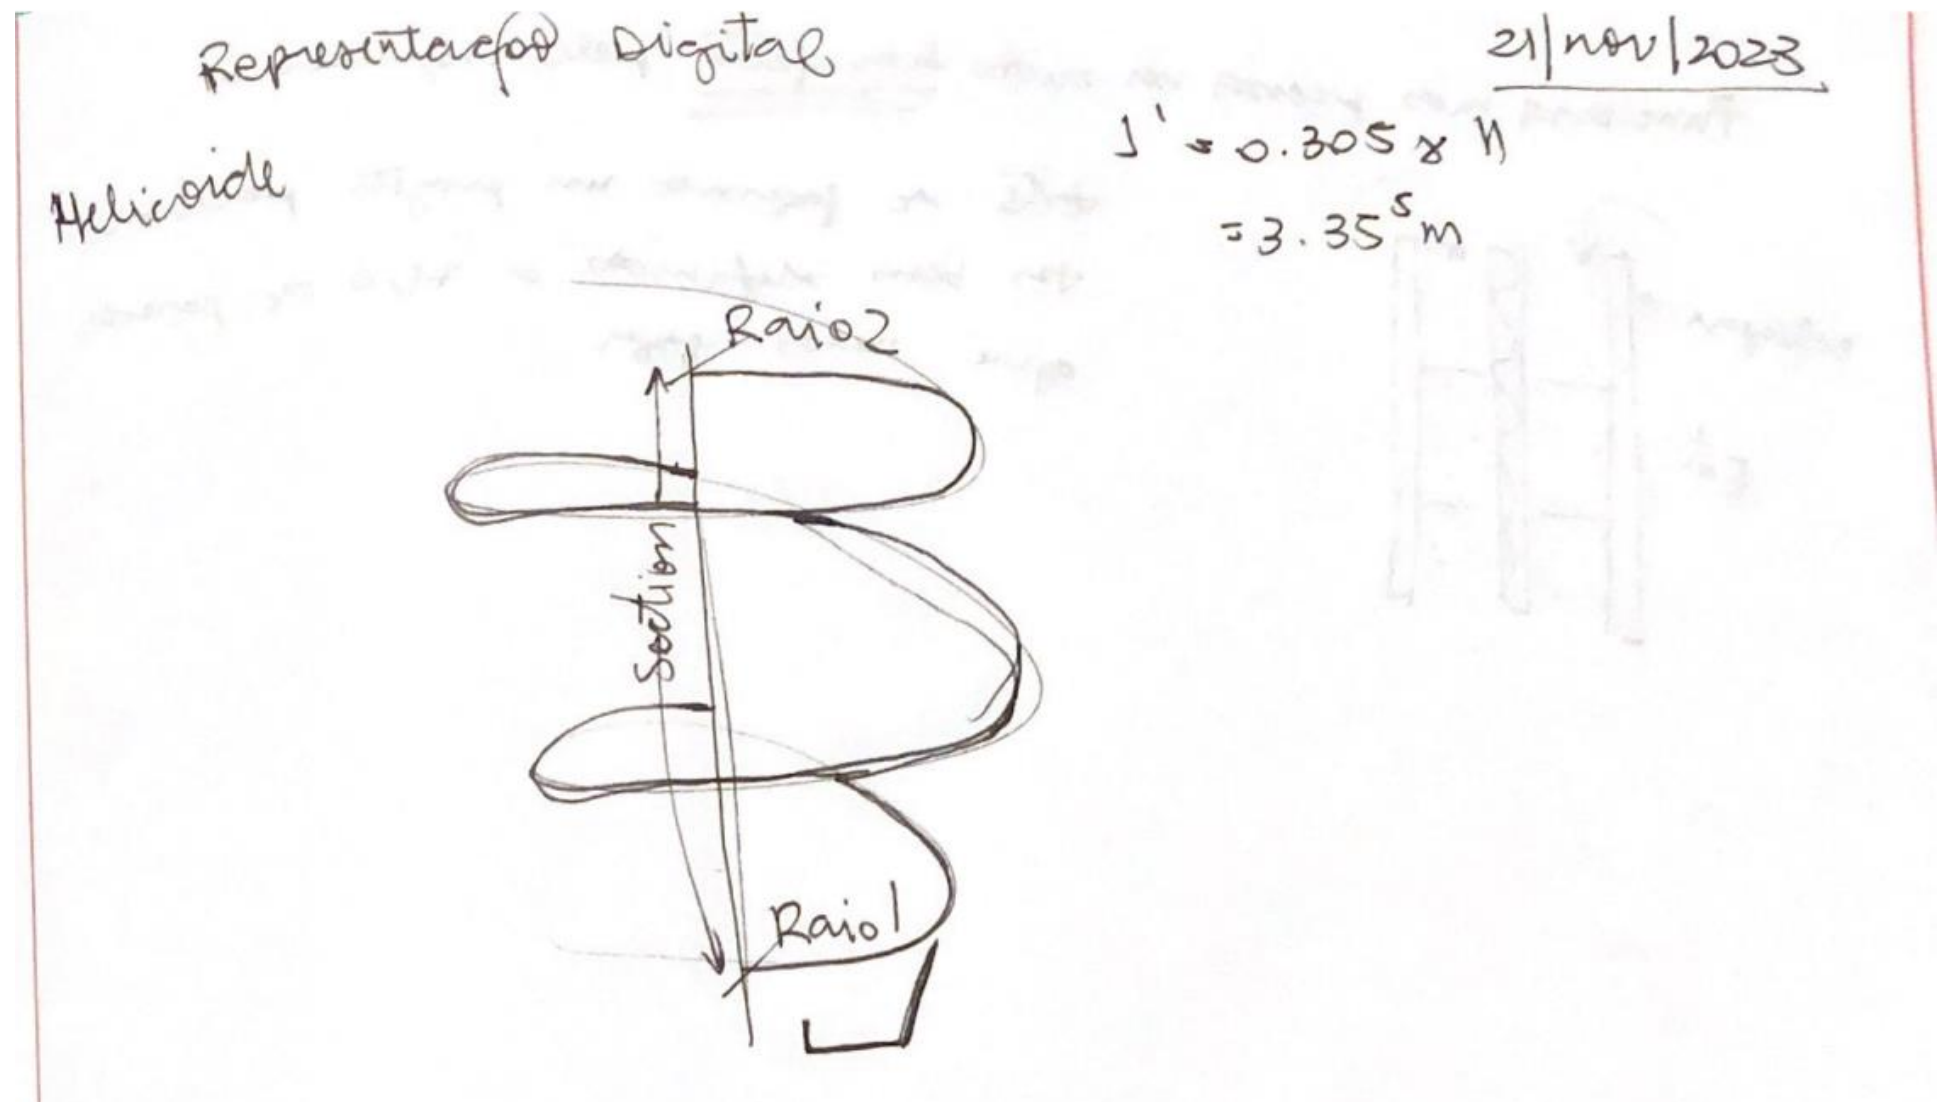 Representação Digital
21/nov/2023
Helicoide
1' = 0.305 x 11
= 3.35⁵ m
Raio2
Section
Raio1